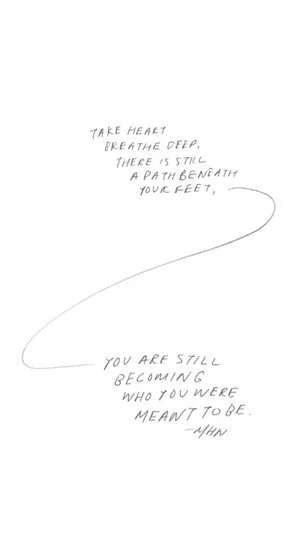 TAKE HEART
BREATHE DEEP,
THERE IS STILL
A PATH BENEATH
YOUR FEET,
YOU ARE STILL
BECOMING
WHO YOU WERE
MEANT TO BE.
-MHN